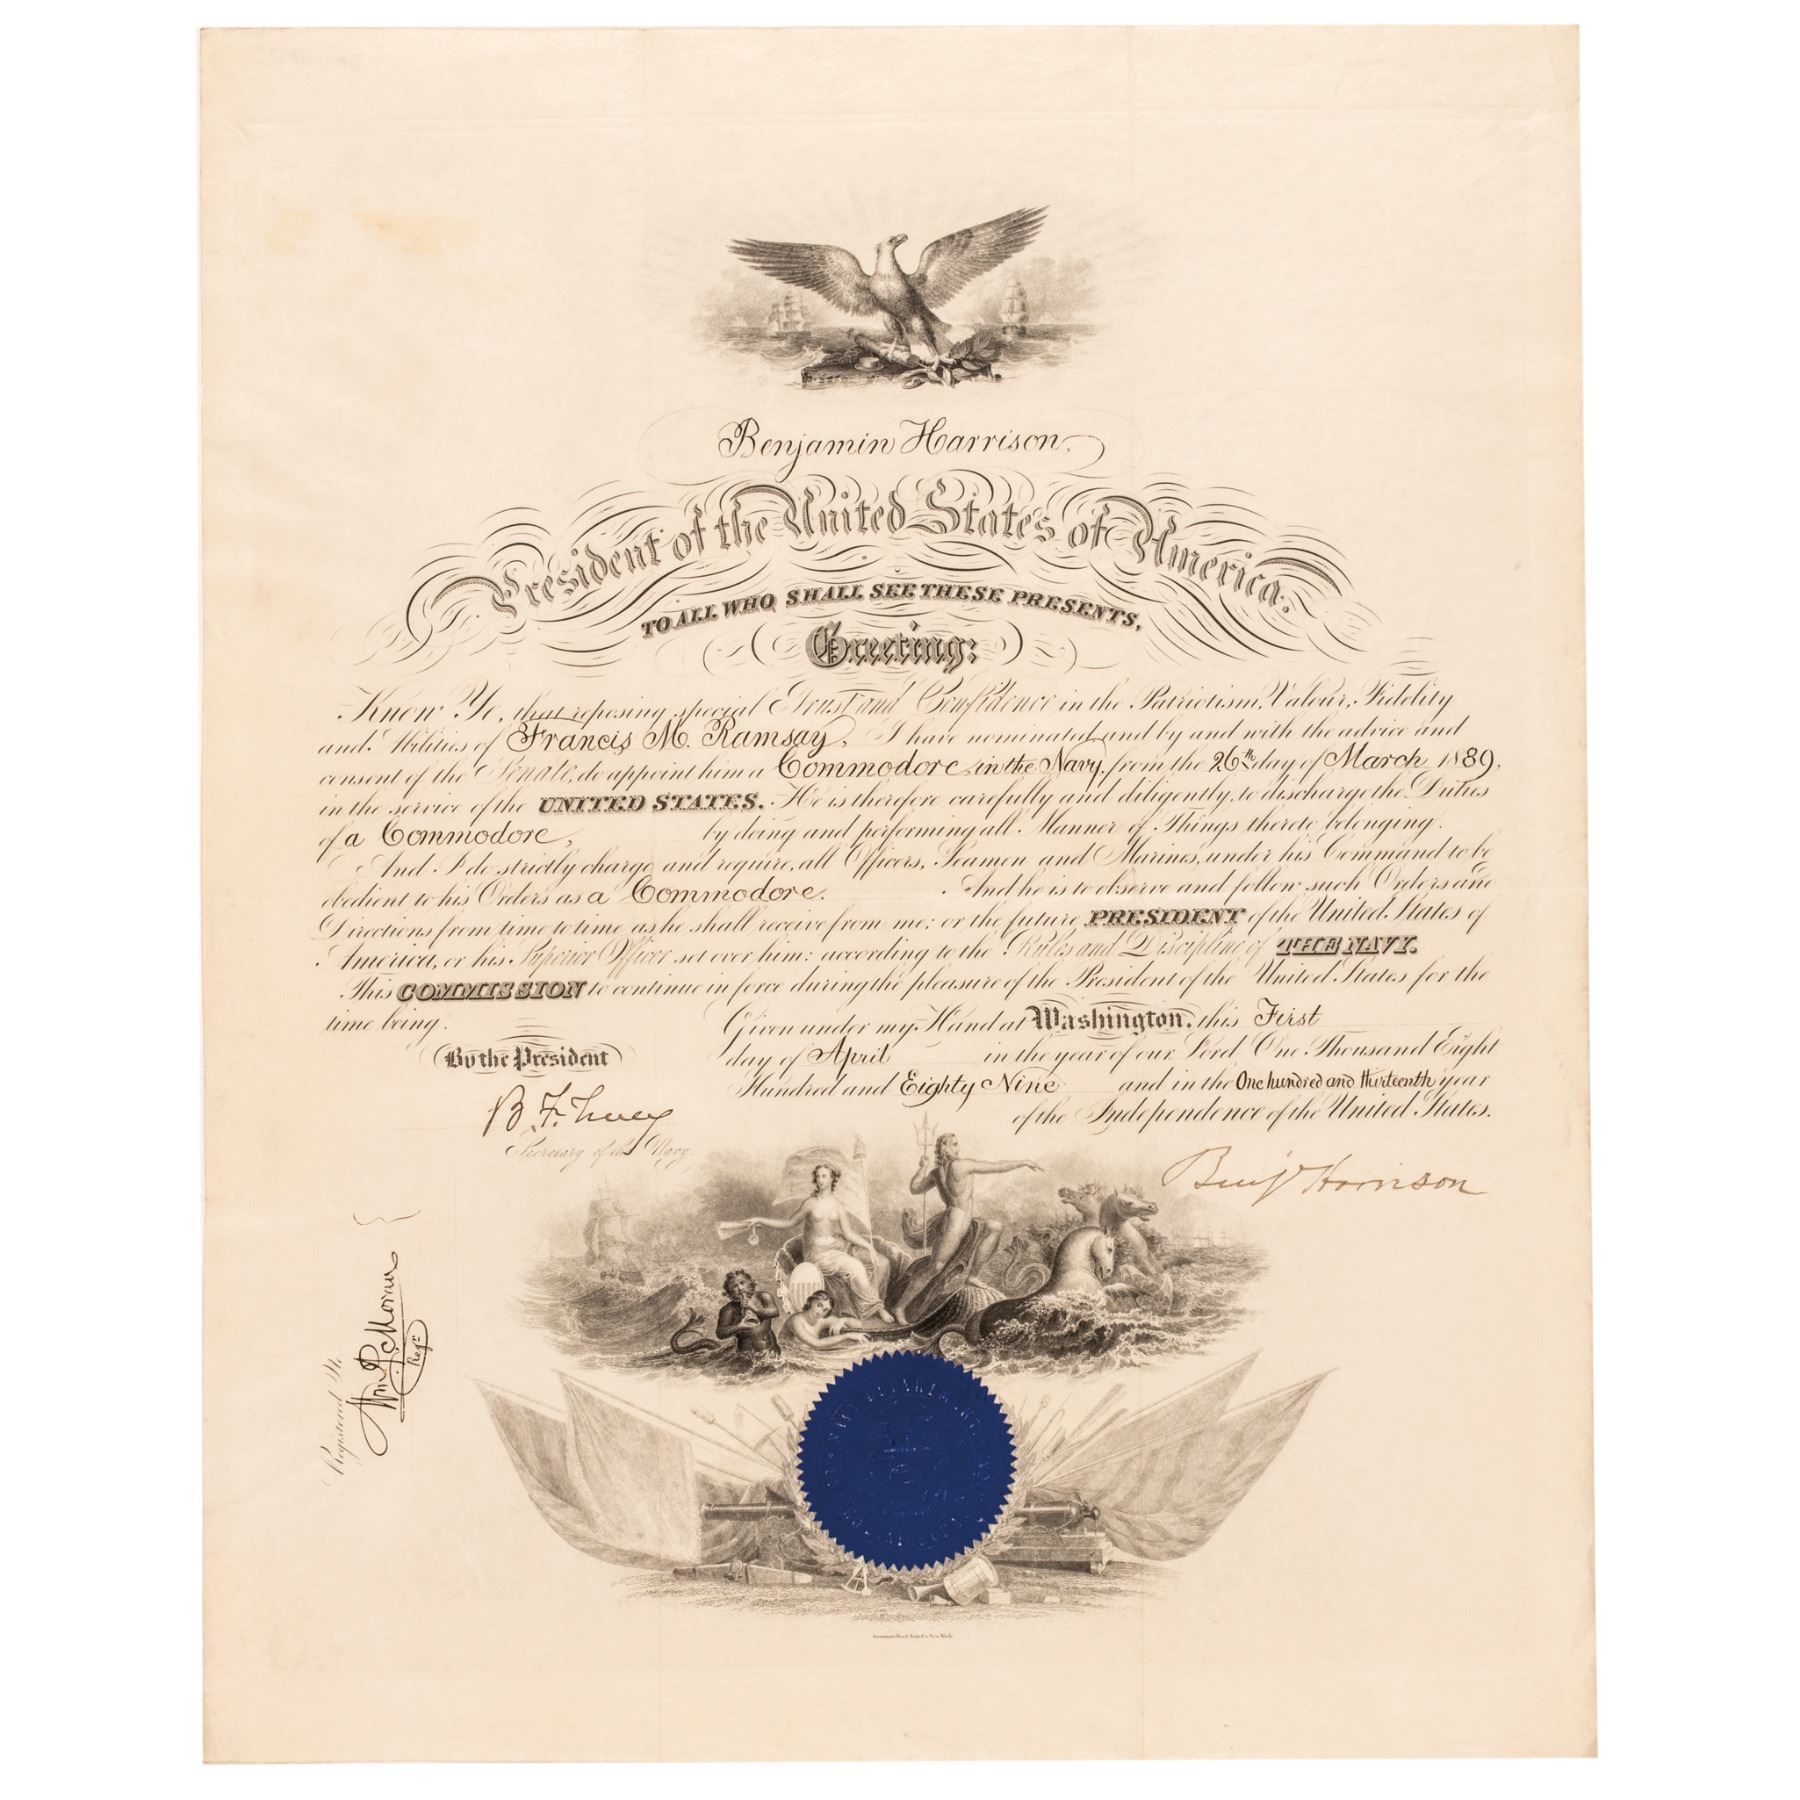 Benjamin Harrison.
President of the United States of America.
TO ALL WHO SHALL SEE THESE PRESENTS,
Greeting:
Know Ye, that reposing special Trust and Confidence in the Patriotism, Valour, Fidelity
and Abilities of Francis M. Ramsay, I have nominated and by and with the advice and
consent of the Senate, do appoint him a Commodore in the Navy, from the 26th day of March 1889,
in the service of the UNITED STATES. He is therefore carefully and diligently, to discharge the Duties
of a Commodore, by doing and performing all Manner of Things thereto belonging.
And I do strictly charge and require, all Officers, Seamen and Marines, under his Command to be
obedient to his Orders as a Commodore. And he is to observe and follow such Orders and
Directions from time to time as he shall receive from me; or the future PRESIDENT of the United States of
America, or his Superior Officer set over him; according to the Rules and Discipline of THE NAVY.
This COMMISSION to continue in force during the pleasure of the President of the United States for the
time being.
Given under my Hand at Washington, this First
day of April in the year of our Lord One Thousand Eight
Hundred and Eighty Nine and in the One hundred and thirteenth year
of the Independence of the United States.
By the President
B. F. Tracy
Secretary of the Navy.
Benj Harrison
Registered
Wm P. Moran
Regr
NAVY DEPARTMENT